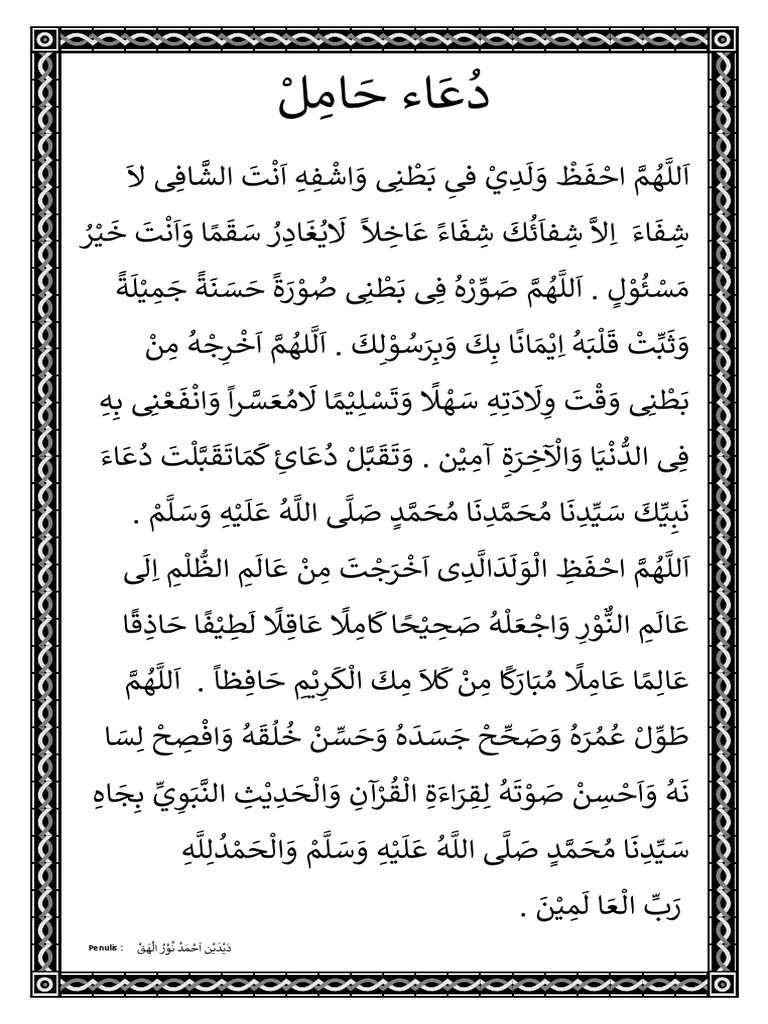 دُعَاء حَامِلْ
اَللَّهُمَّ احْفَظْ وَلَدِيْ فىِ بَطْنِى وَاشْفِهِ اَنْتَ الشَّافِى لاَ
شِفَاءَ اِلاَّ شِفاَئُكَ شِفَاءً عَاخِلاً لَايُغَادِرُ سَقَمًا وَاَنْتَ خَيْرُ
مَسْئُوْلٍ . اَللَّهُمَّ صَوِّرْهُ فِى بَطْنِى صُوْرَةً حَسَنَةً جَمِيْلَةً
وَثَبِّتْ قَلْبَهُ اِيْمَانًا بِكَ وَبِرَسُوْلِكَ . اَلَّلهُمَّ اَخْرِجْهُ مِنْ
بَطْنِى وَقْتَ وِلَادَتِهِ سَهْلًا وَتَسْلِيْمًا لَامُعَسَّراً وَانْفَعْنِى بِهِ
فِى الدُّنْيَا وَالْآخِرَةِ آمِيْن . وَتَقَبَّلْ دُعَائِ كَمَاتَقَبَّلْتَ دُعَاءَ
نَبِيِّكَ سَيِّدِنَا مُحَمَّدِنَا مُحَمَّدٍ صَلَّى اللَّهُ عَلَيْهِ وَسَلَّمْ .
اَللَّهُمَّ احْفَظِ الْوَلَدَالَّدِى اَخْرَجْتَ مِنْ عَالَمِ الظُّلْمِ اِلَى
عَالَمِ النٌّوْرِ وَاجْعَلْهُ صَحِيْحًا كَامِلًا عَاقِلًا لَطِيْفًا حَاذِقًا
عَالِمًا عَامِلًا مُبَارَكًا مِنْ كَلاَ مِكَ الْكَرِيْمِ حَافِظاً . اَللَّهُمَّ
طَوِّلْ عُمُرَهُ وَصَحِّحْ جَسَدَهُ وَحَسِّنْ خُلُقَهُ وَافْصِحْ لِسَا
نَهُ وَاَحْسِنْ صَوْتَهُ لِقِرَاءَةِ الْقُرْآنِ وَالْحَدِيْثِ النَّبَوِيِّ بِجَاهِ
سَيِّدِنَا مُحَمَّدٍ صَلَّى اللَّهُ عَلَيْهِ وَسَلَّمْ وَالْحَمْدُلِلَّهِ
رَبِّ الْعَا لَمِيْنَ .
Penulis : دَيْدَيْن اَحْمَدْ نُوْرُ الْهَقْ